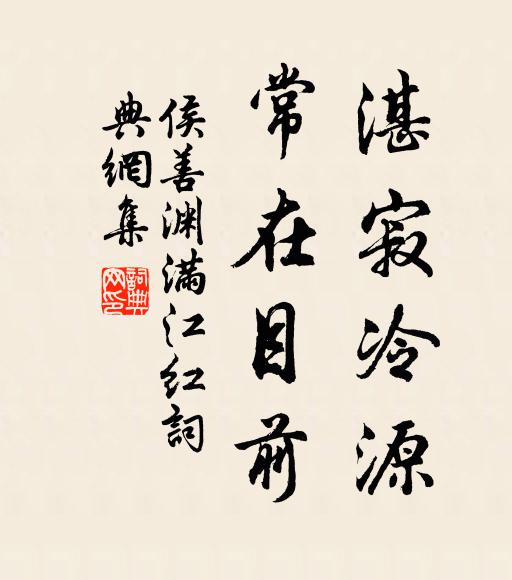 湛寂冷源
常在目前
侯善渊满江红詞
典網集
詞典網印